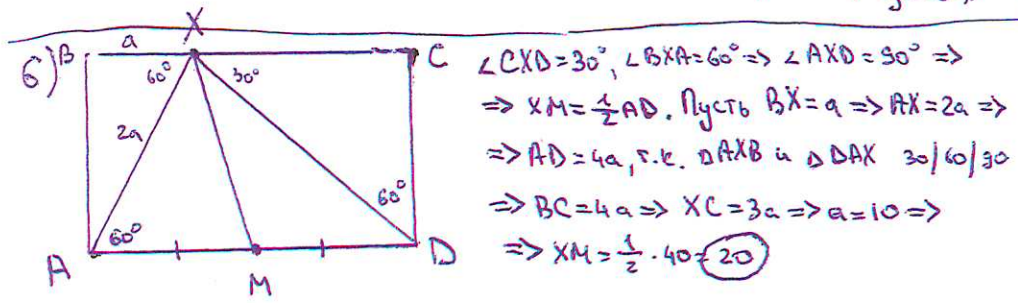 X
B a C
б)
60° 30°
2a
60° 60°
A M D
∠CXD=30°, ∠BXA=60° => ∠AXD=90° =>
=> XM=½AD. Пусть BX=a => AX=2a =>
=> AD=4a, т.к. △AXB и △DAX 30/60/90
=> BC=4a => XC=3a => a=10 =>
=> XM=½·40=20